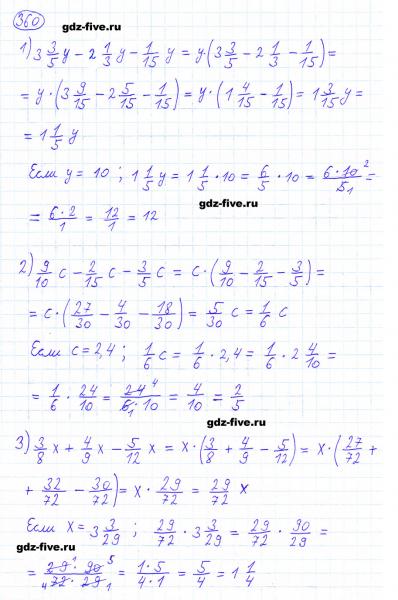 360
gdz-five.ru
1) 3 3/5 y - 2 1/3 y - 1/15 y = y·(3 3/5 - 2 1/3 - 1/15) =
= y·(3 9/15 - 2 5/15 - 1/15) = y·(1 4/15 - 1/15) = 1 3/15 y =
= 1 1/5 y
Если y = 10 ; 1 1/5 y = 1 1/5 · 10 = 6/5 · 10 = 6·10²/5₁ =
gdz-five.ru
= 6·2/1 = 12/1 = 12
2) 9/10 c - 2/15 c - 3/5 c = c·(9/10 - 2/15 - 3/5) =
= c·(27/30 - 4/30 - 18/30) = 5/30 c = 1/6 c
Если c = 2,4 ; 1/6 c = 1/6 · 2,4 = 1/6 · 2 4/10 =
= 1/6 · 24/10 = 24⁴/6₁·10 = 4/10 = 2/5
gdz-five.ru
3) 3/8 x + 4/9 x - 5/12 x = x·(3/8 + 4/9 - 5/12) = x·(27/72 +
+ 32/72 - 30/72) = x · 29/72 = 29/72 x
Если x = 3 3/29 ; 29/72 · 3 3/29 = 29/72 · 90/29 =
= 29¹·90⁵/₄72·29₁ = 1·5/4·1 = 5/4 = 1 1/4
gdz-five.ru